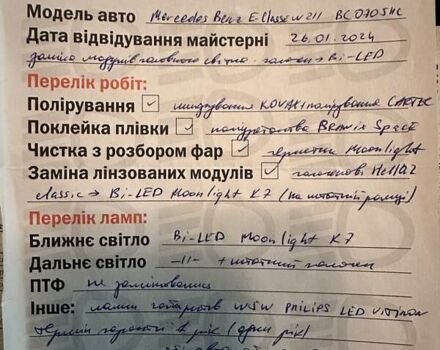 Модель авто Mercedes Benz E-Classe W211 BC0705HC
Дата відвідування майстерні 26.01.2024
заміна модулів головного світла галоген > Bi-LED
Перелік робіт:
Полірування ✓ шліфування KOVAX полірування CARTEC
Поклейка плівки ✓ поліуретанова Spree
Чистка з розбором фар ✓ герметик Moonlight
Заміна лінзованих модулів ✓ галогенові Hella 2
classic → Bi-LED Moonlight K7 (на штатній рамці)
Перелік ламп:
Ближнє світло Bi-LED Moonlight K7
Дальнє світло -//- + штатний галоген
ПТФ не замінювались
Інше: лампи габаритів W5W PHILIPS LED
Термін гарантії 1 рік (один рік)